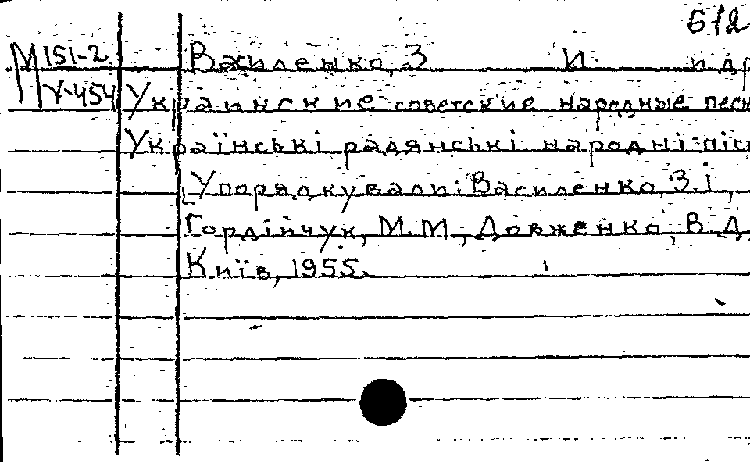 б/д
М 151-2 Василенко, З И. и др
У-454 Украинские советские народные песн
Українські радянські народні піс
[Упорядкували: Василенко, З.І.,
Гордійчук, М.М., Довженко, В.Д.
Київ, 1955.